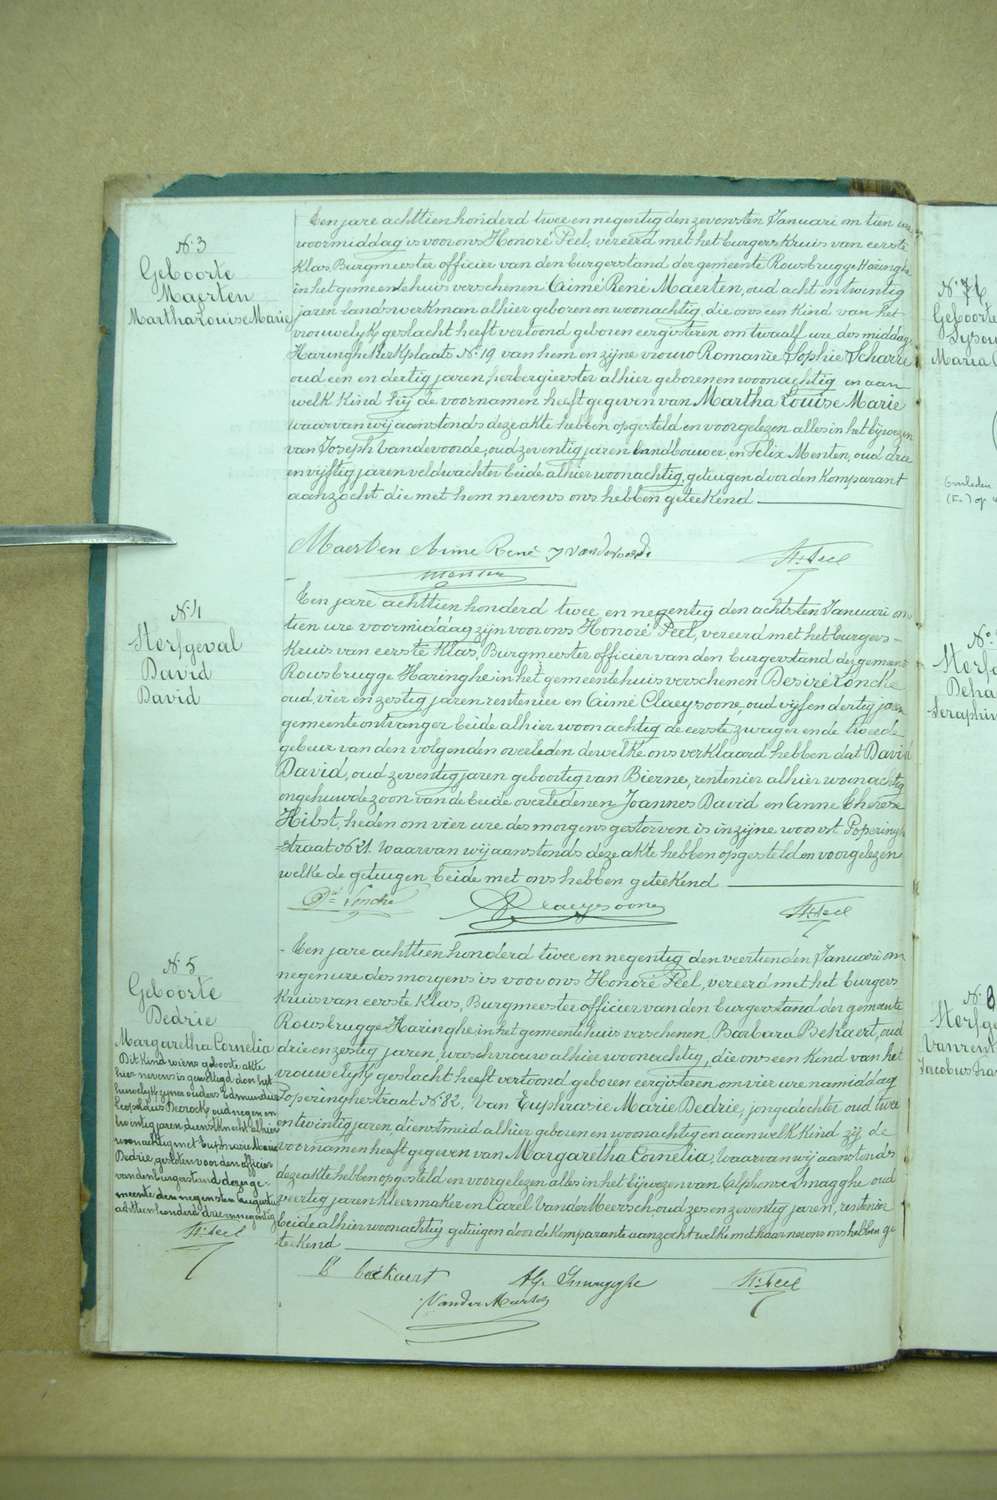 N. 3
Geboorte
Maerten
Martha Louise Marie
Een jare achttien honderd twee en negentig den zevensten Januari om tien ure
voormiddag is voor ons Honoré Peel, vereerd met het burgers kruis van eerste
klas, Burgmeester officier van den burgerstand der gemeente Rousbrugge Haringhe
in het gemeentehuis verschenen Aimé René Maerten, oud acht en twintig
jaren landswerkman alhier geboren en woonachtig, die ons een kind van het
vrouwelijk geslacht heeft vertoond geboren eergisteren om twaalf ure des middags
Haringhe Kerkplaats No. 19 van hem en zijne vrouw Romanie Sophie Scharre
oud een en dertig jaren, herbergierster alhier geboren en woonachtig en aan
welk kind hij de voornamen heeft gegeven van Martha Louise Marie
waarvan wij aanstonds deze akte hebben opgesteld en voorgelezen alles in het bijwezen
van Joseph Vandevoorde, oud zeventig jaren landbouwer en Felix Menten, oud drie
en vijftig jaren veldwachter beide alhier woonachtig, getuigen door den komparant
aanzocht die met hem nevens ons hebben geteekend
Maerten Aime René J Vandevoorde Hre Peel
Menten
N. 4
Sterfgeval
David
David
Een jare achttien honderd twee en negentig den achtsten Januari om
tien ure voormiddag zijn voor ons Honoré Peel, vereerd met het burgers-
kruis van eerste klas, Burgmeester officier van den burgerstand der gemeente
Rousbrugge Haringhe in het gemeentehuis verschenen Desiré Loncke
oud, vier en zestig jaren rentenier en Aimé Claeysoone, oud vijf en dertig jaren
gemeente ontvanger beide alhier woonachtig de eerste zwager en de tweede
gebuur van den volgenden overleden dewelke ons verklaard hebben dat David
David, oud zeventig jaren geboortig van Bierne, rentenier alhier woonachtig
ongehuwde zoon van de beide overledenen Joannes David en Anne Therese
Hibst, heden om vier ure des morgens gestorven is in zijne woonst Poperinghe
straat No 21. Waarvan wij aanstonds deze akte hebben opgesteld en voorgelezen
welke de getuigen beide met ons hebben geteekend
Dré Loncke A Claeysoone Hre Peel
N. 5
Geboorte
Dedrie
Margaretha Cornelia
Dit kind wiens geboorte akte
hier nevens is gewettigd door het
huwelijk zijner ouders Edmundus
Leopoldus Derock, oud negen en
twintig jaren, dienstknecht alhier
woonachtig met Euphrasie Marie
Dedrie, gesloten voor den officier
van den burgerstand dezer ge-
meente den negensten Augusti
achttien honderd drie en negentig
Hre Peel
Een jare achttien honderd twee en negentig den veertienden Januari om
negen ure des morgens is voor ons Honoré Peel, vereerd met het burgers
kruis van eerste klas, Burgmeester officier van den burgerstand der gemeente
Rousbrugge Haringhe in het gemeentehuis verschenen Barbara Bekaert, oud
drie en zestig jaren, waschvrouw alhier woonachtig, die ons een kind van het
vrouwelijk geslacht heeft vertoond geboren eergisteren om vier ure namiddag
Poperinghestraat No. 82, van Euphrasie Marie Dedrie, jongedochter oud twee
en twintig jaren, dienstmeid alhier geboren en woonachtig en aan welk kind zij de
voornamen heeft gegeven van Margaretha Cornelia, Waarvan wij aanstonds
deze akte hebben opgesteld en voorgelezen alles in het bijwezen van Alphonse Smagghe oud
veertig jaren kleermaker en Carel VanderMeersch oud zes en zeventig jaren, rentenier
beide alhier woonachtig getuigen door de komparante aanzocht welke met haar nevens ons hebben ge
teekend
B Beckaert Alp. Smagghe Hre Peel
VanderMeersch
N. 76
Geboorte
Maria
Sterf
Seraphin
N. 8
Sterfge
Jacobus